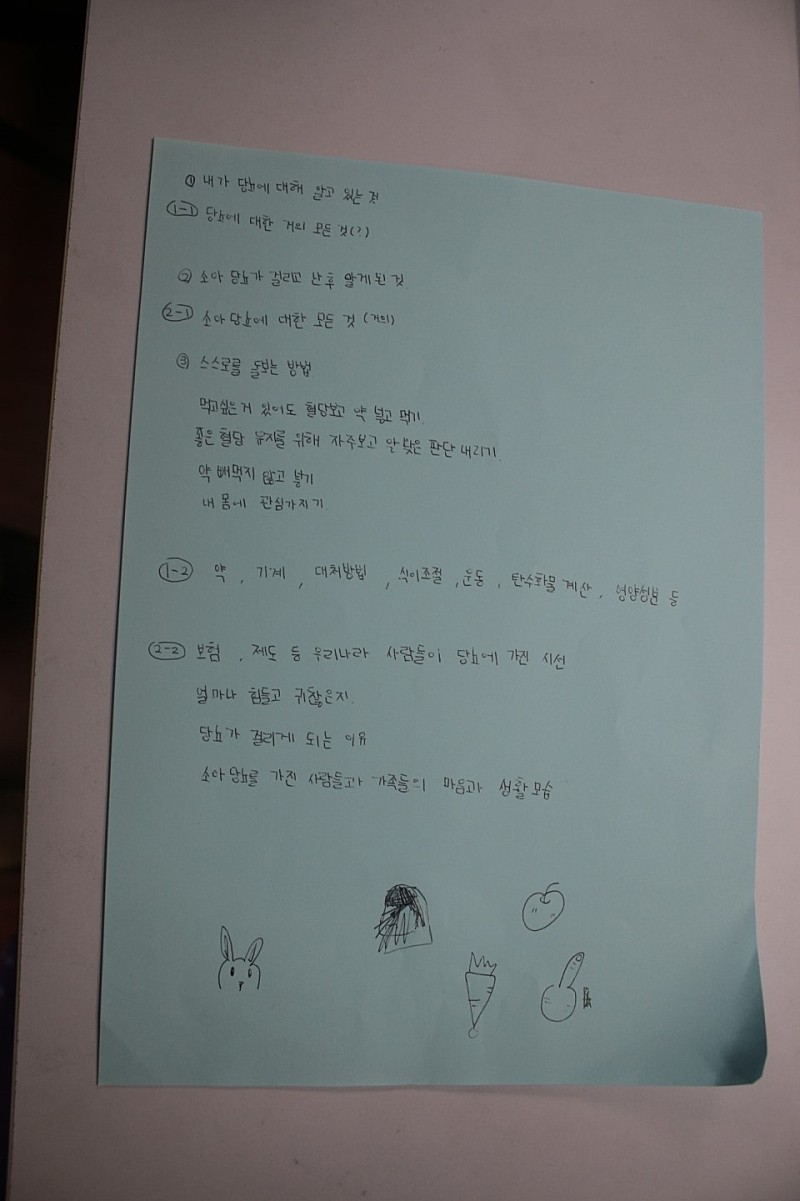 ① 내가 당뇨에 대해 알고 있는 것
1-1 당뇨에 대한 거의 모든 것(?)
② 소아 당뇨가 걸리고 난 후 알게 된 것
2-1 소아 당뇨에 대한 모든 것 (거의)
③ 스스로를 돌보는 방법
먹고싶은거 있어도 혈당보고 약 넣고 먹기.
좋은 혈당 유지를 위해 자주보고 알맞은 판단 내리기.
약 빼먹지 않고 넣기
내 몸에 관심가지기
1-2 약, 기계, 대처방법, 식이조절, 운동, 탄수화물 계산, 영양성분 등
2-2 보험, 제도 등 우리나라 사람들이 당뇨에 가진 시선
얼마나 힘들고 귀찮은지.
당뇨가 걸리게 되는 이유
소아 당뇨를 가진 사람들과 가족들의 마음과 생활 모습